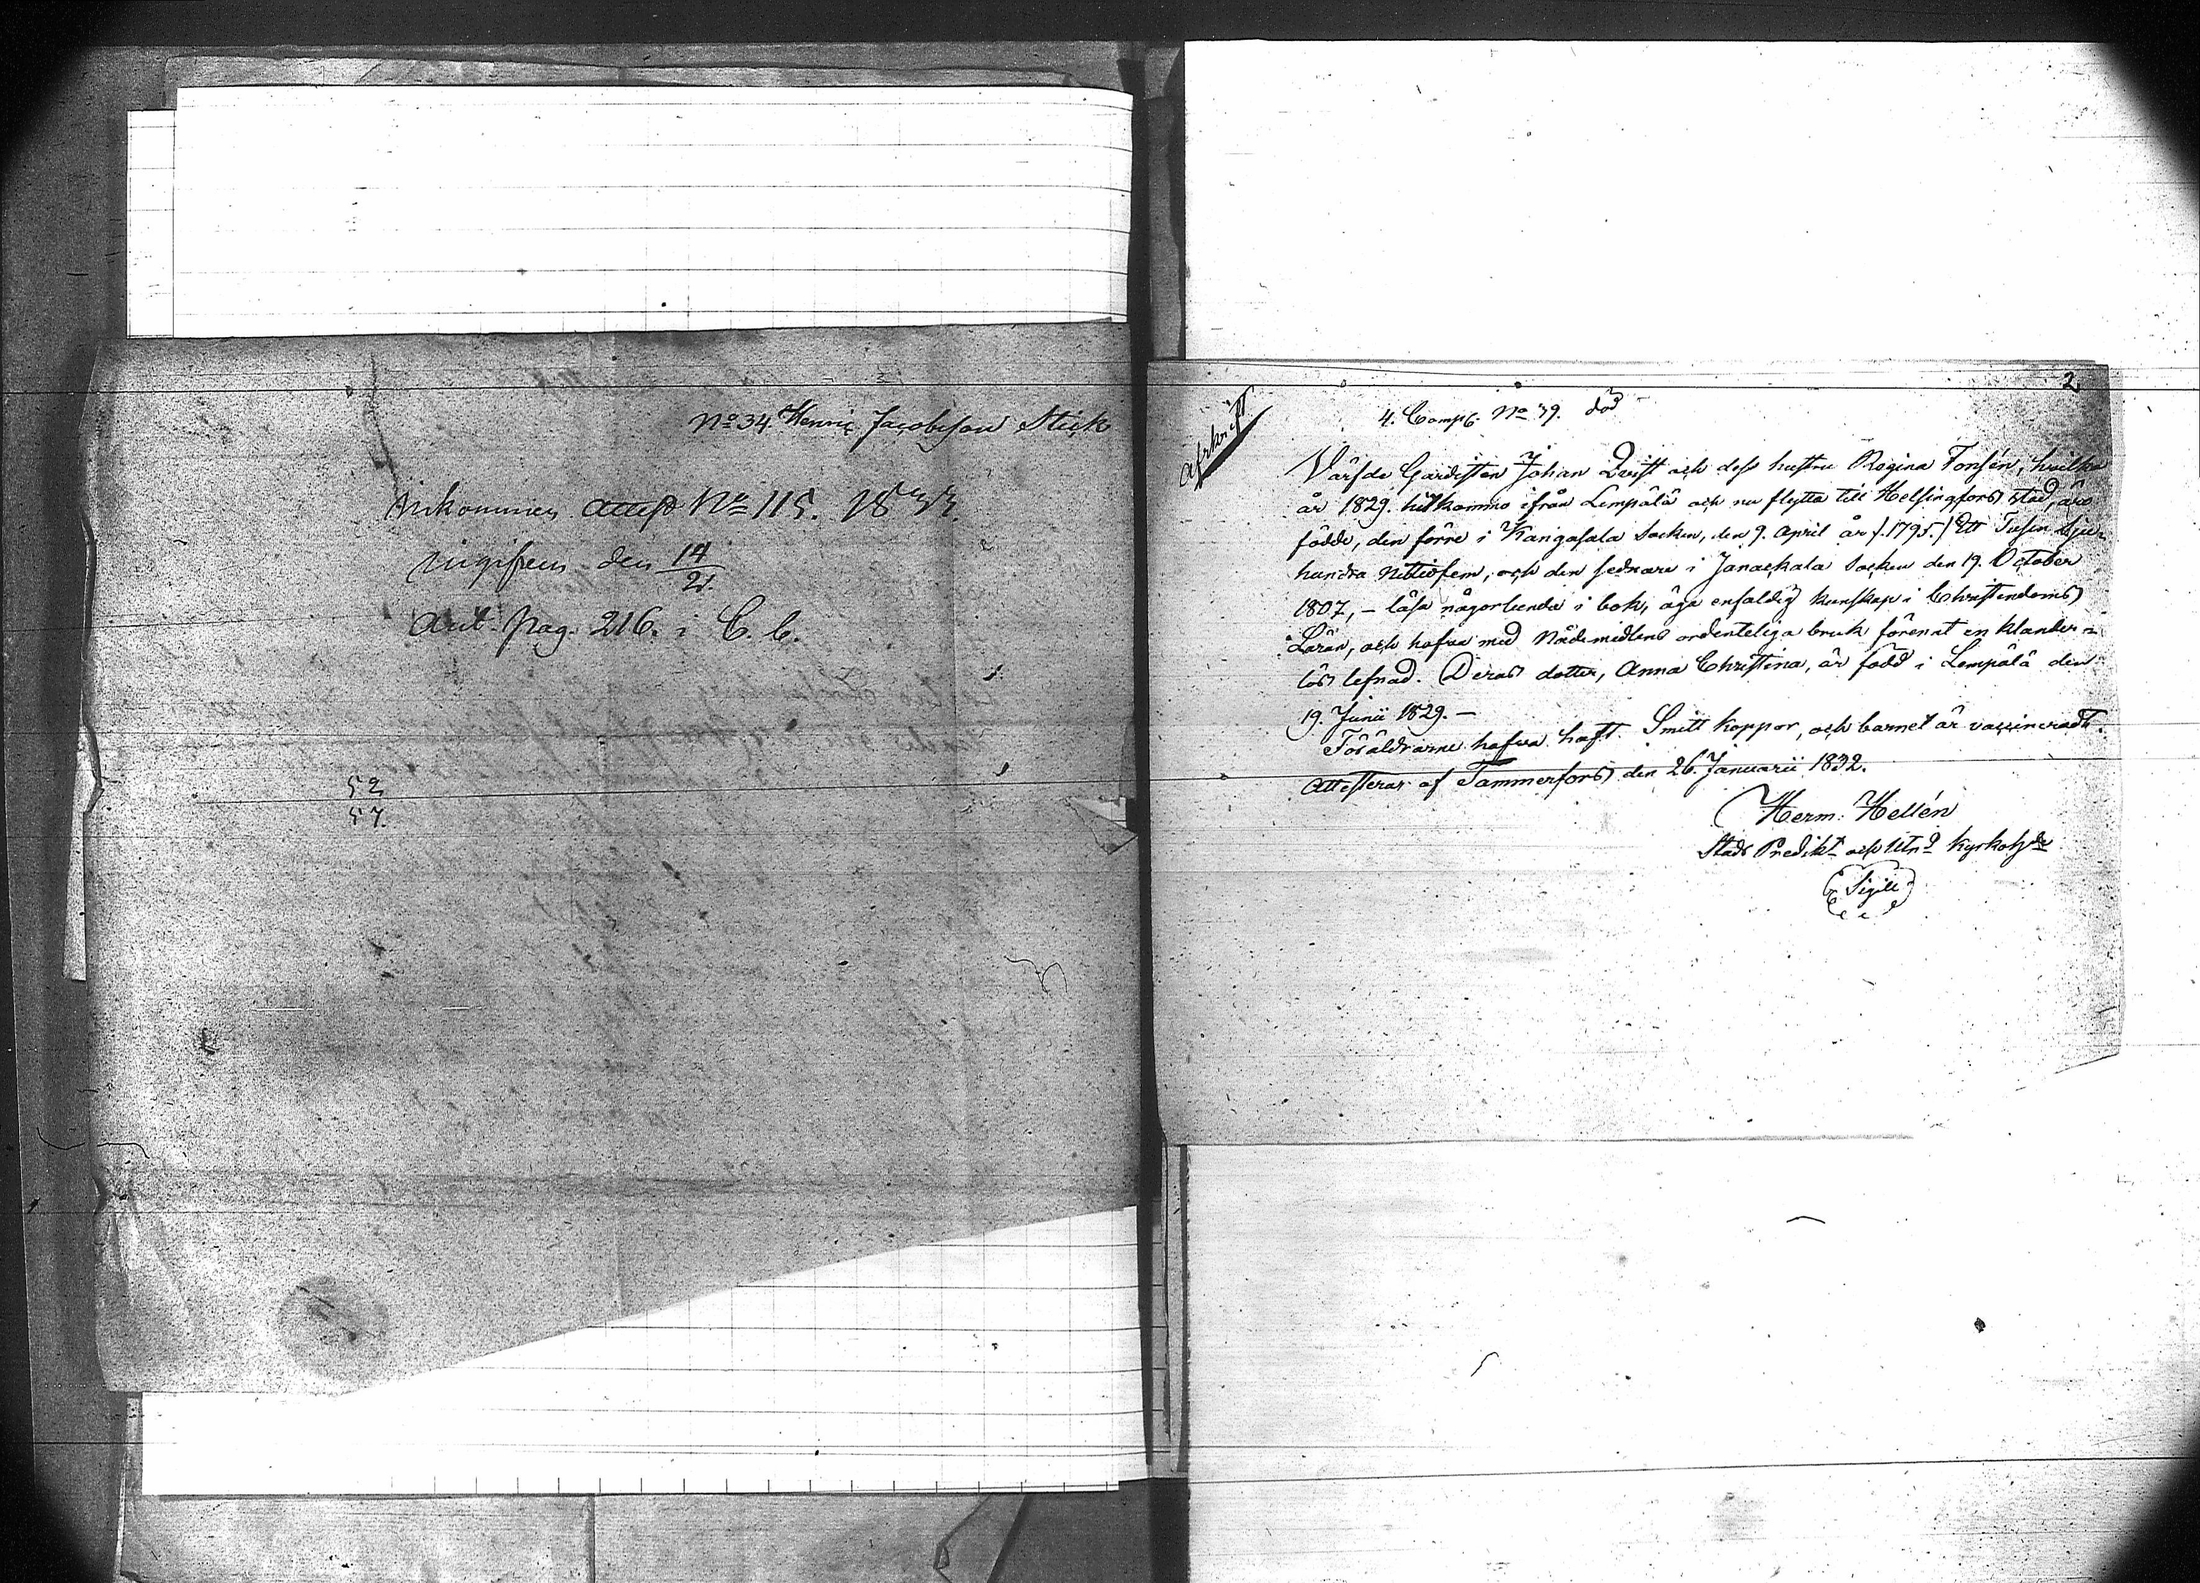 No 34 Henric Jacobsson Stick
Ankommen attest No 115. 1833.
ingifven den 14/2.
Ant. pag. 216. i C. b.
52
57.
2
Afskrift
4. Comp. No 39. död
Värfde Gardisten Johan Qvist och dess hustru Regina Forsén, hvilka
år 1829. hitkommo ifrån Lempälä och nu flytta till Helsingfors stad, äro
födde, den förre i Kangasala Socken, den 9. April år /:1795:/ Ett Tusen Sju-
hundra Nittiofem, och den sednare i Janackala Socken den 19. October
1807, – läsa någorlunda i bok, äga enfaldig kunskap i Christendoms
Läran, och hafva med Nådemedlens ordenteliga bruk förent en klander-
lös lefnad. Deras dotter, Anna Christina, är född i Lempälä den
19. Junii 1829. –
Föräldrarne hafva haft Smitt koppor, och barnet är vaccineradt.
Attesterar af Tammerfors den 26. Januarii 1832.
Herm: Hellén
Stads Predikt och Kyrkohde
Sigill